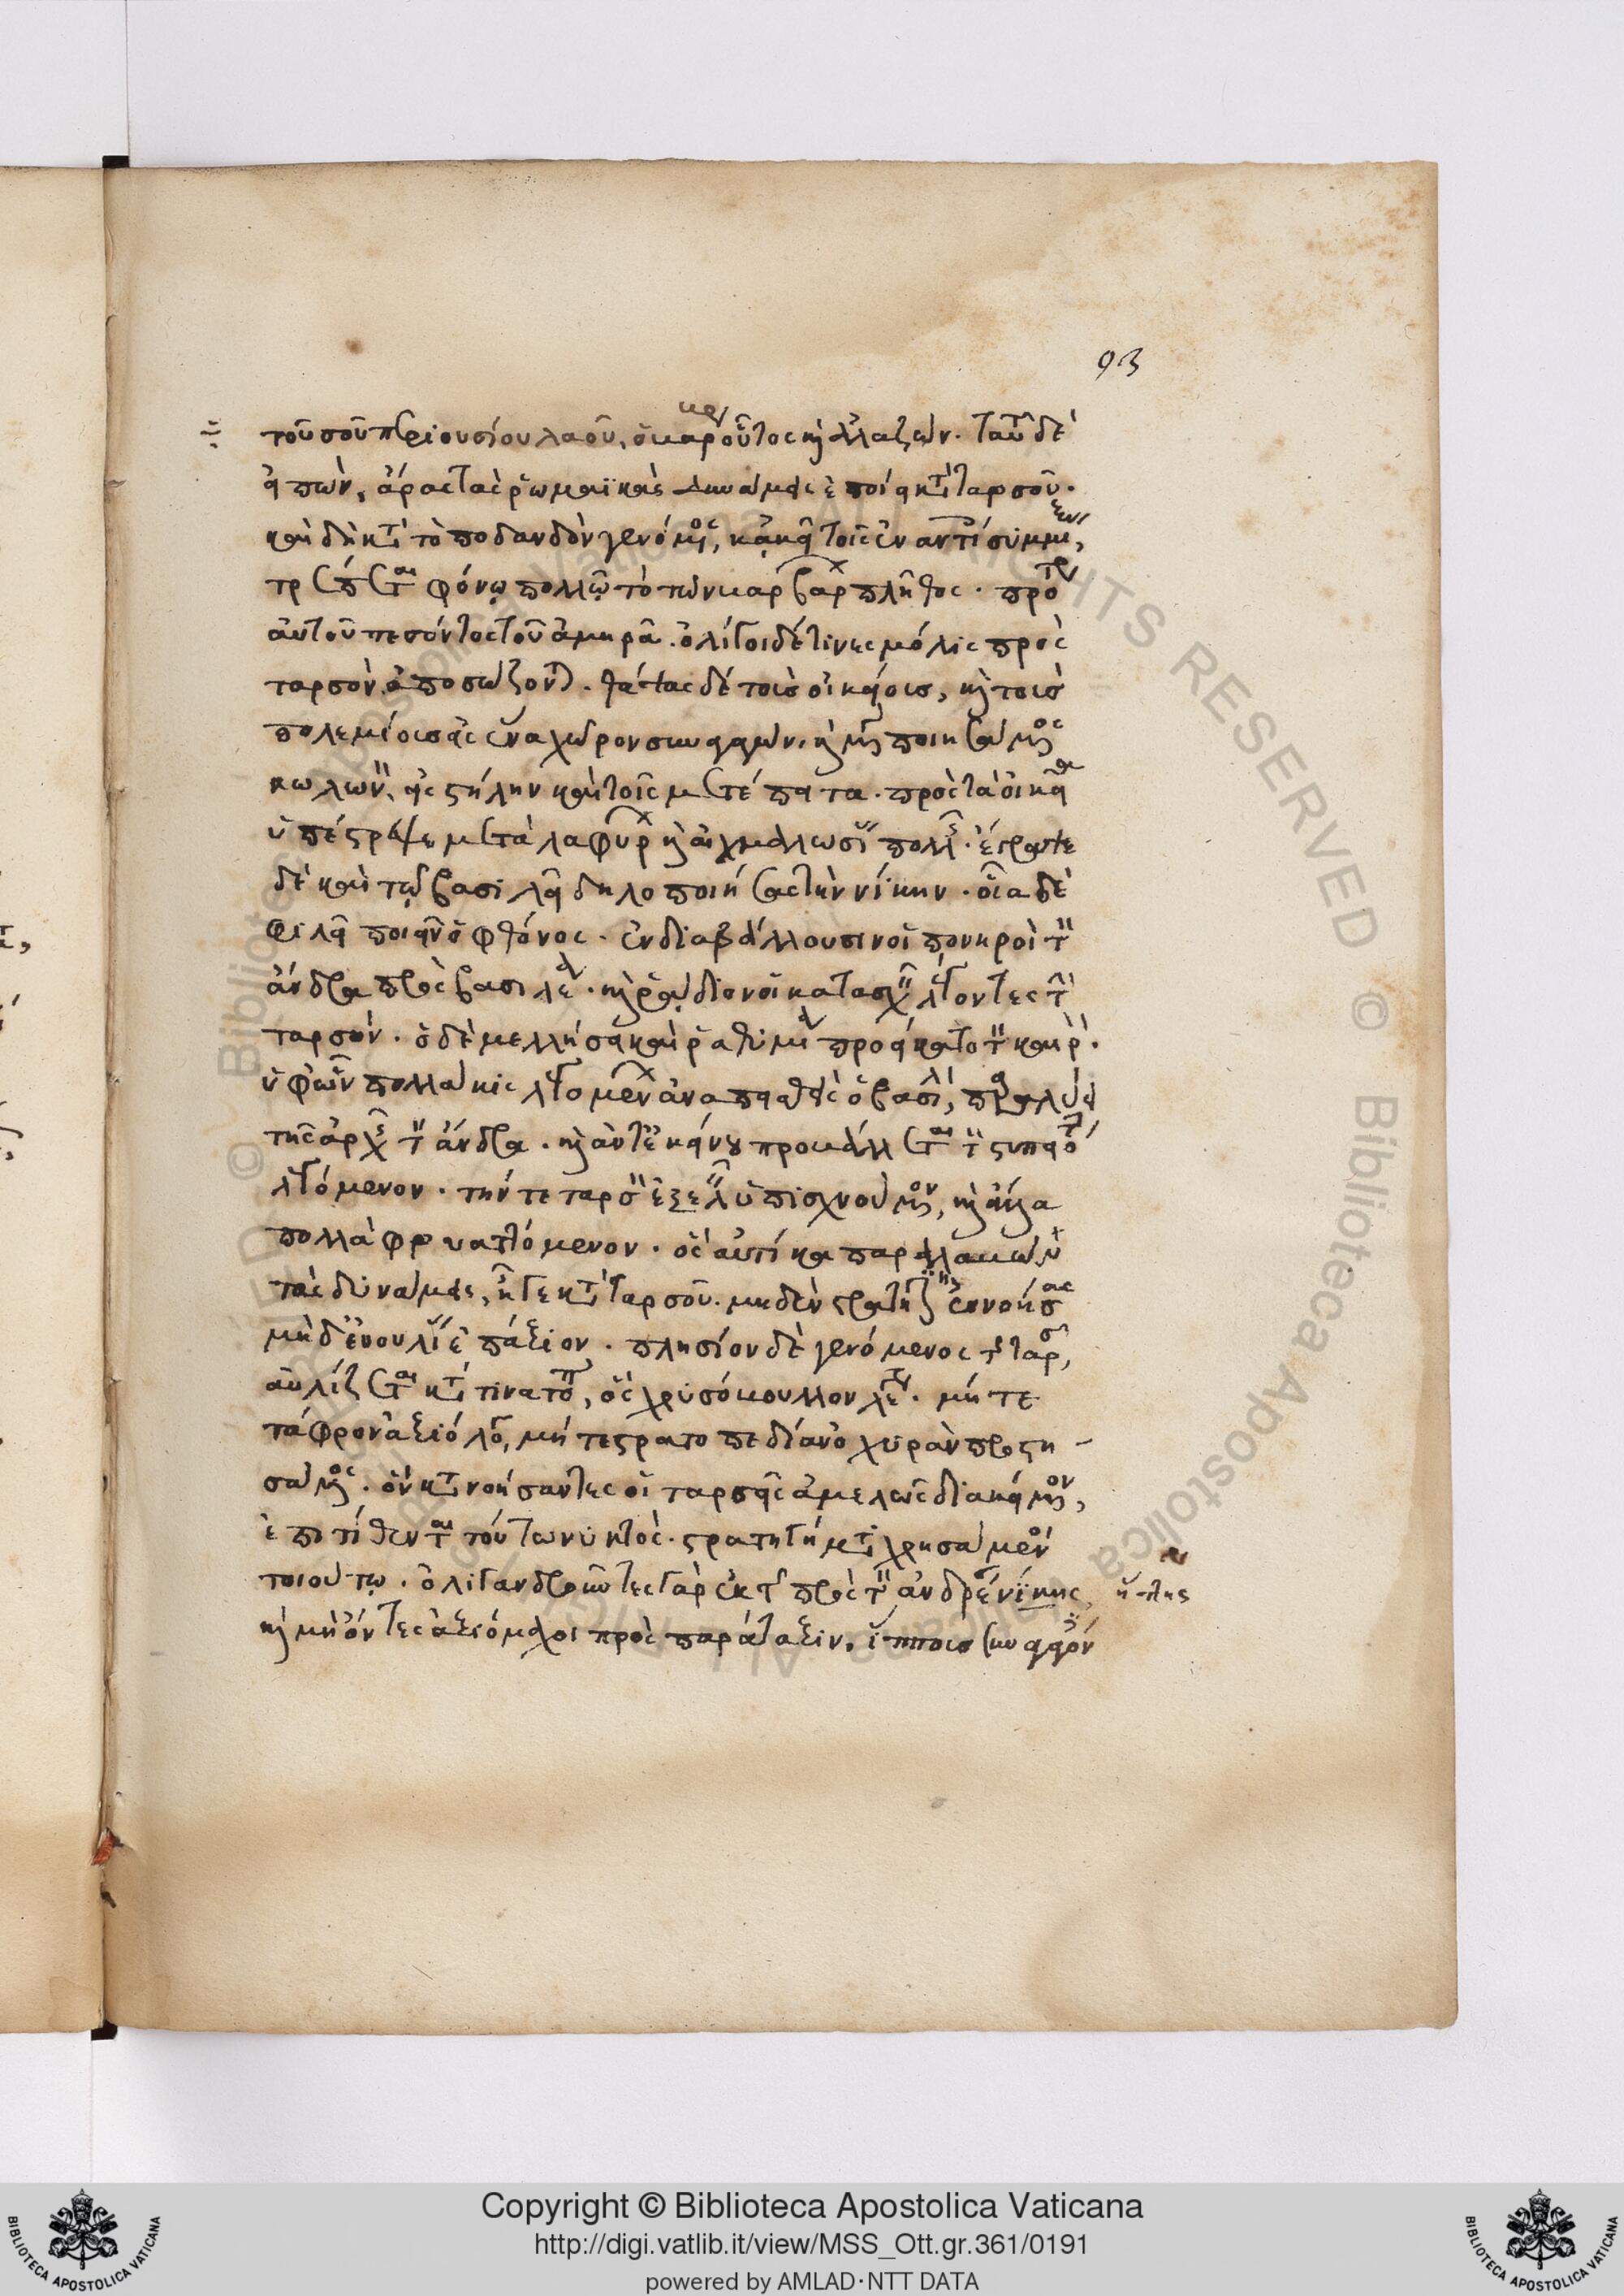 93
τοῦ σοῦ περιουσίου λαοῦ, ὁ βάρβαρος οὗτος καὶ ἀλαζών. ταῦτα δὲ
εἰπὼν, ἄρας τὰς ῥωμαϊκὰς δυνάμεις ἐποίει κατὰ ταρσοῦ.
καὶ δὴ κατὰ τὸ ποδανδὸν γενόμενος, κἀκεῖ τοῖς ἐναντίοις συμμίξας,
τρέπεται φόνῳ πολλῷ τὸ τῶν βαρβάρων πλῆθος. πρότερον
αὐτοῦ πεσόντος τοῦ ἀμηρᾶ. ὀλίγοι δέ τινες μόλις πρὸς
ταρσὸν ἀποσώζονται. θάψας δὲ τοὺς οἰκείους, καὶ τοὺς
πολεμίους εἰς ἕνα χῶρον συναγαγὼν, καὶ μέγαν ποιησάμενος
κολωνὸν, εἰς στήλην καὶ τοῖς μετέπειτα. πρὸς τὰ οἰκεῖα
ὑπέστρεψε μετὰ λαφύρων καὶ αἰχμαλωσίας πολλῆς. ἔγραψε
δὲ καὶ τῷ βασιλεῖ δηλοποιήσας τὴν νίκην. οἷα δὲ
φιλεῖ ποιεῖν ὁ φθόνος. ἐνδιαβάλλουσιν οἱ πονηροὶ τὸν
ἄνδρα πρὸς βασιλέα. καὶ ῥᾴδιον οἱ κατασχεῖν λέγοντες τὴν
ταρσόν. ὁ δὲ μελλήσει καὶ ῥαθυμίᾳ προσήκατο τὸν καιρόν.
ὑφ' ὧν πολλάκις λεγομένων ἀναπεισθεὶς ὁ βασιλεὺς, παραλύει
τῆς ἀρχῆς τὸν ἄνδρα. καὶ ἀντ' ἐκείνου προβάλλεται τὸν στυπειώτην
λεγόμενον. τήν τε ταρσὸν ἐξελεῖν ὑπισχνούμενον, καὶ ἄλλα
πολλὰ φρυαττόμενον. ὃς αὐτίκα παραλαβὼν
τὰς δυνάμεις, ᾔει κατὰ ταρσοῦ. μηδὲν στρατηγικὸν ἐννοήσας
μηδ' ἐμβουλίας ἐπάξιον. πλησίον δὲ γενόμενος τῆς ταρσοῦ,
αὐλίζεται κατά τινα τόπον, ὃς χρυσόβουλλον λέγεται. μήτε
τάφρον ἀξιόλογον, μήτε στρατοπεδίαν ὀχυρὰν προστη-
σάμενος. ὃν κατανοήσαντες οἱ ταρσεῖς ἀμελῶς διακείμενον,
ἐπιτίθενται τούτῳ νυκτὸς. στρατηγήματι χρησάμενοι
τοιούτῳ. ὀλιγανδροῦντες γὰρ ἐκ τῆς πρὸς τὸν ἀνδρέαν νίκης, ἥττης
καὶ μὴ ὄντες ἀξιόμαχοι πρὸς παράταξιν, ἵππους συναγαγόν